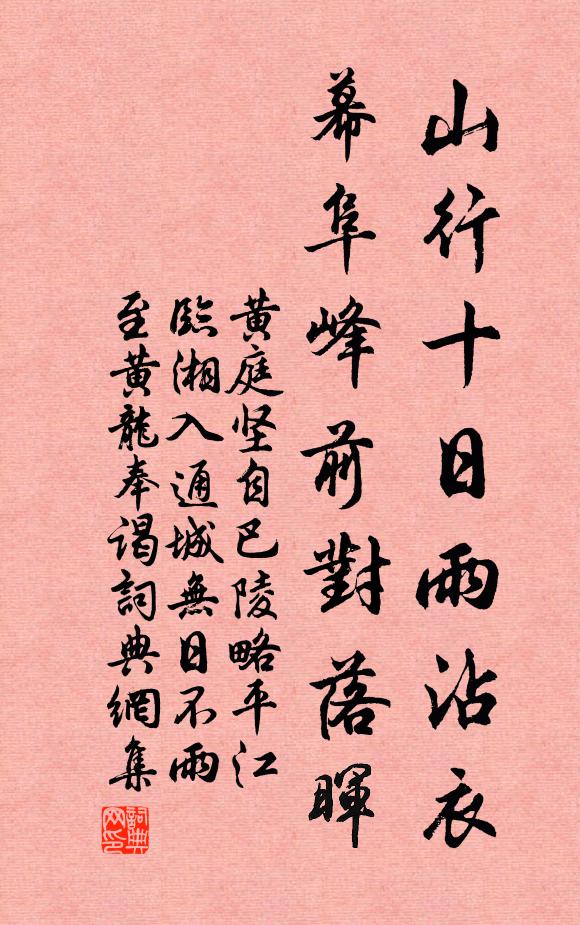 山行十日雨沾衣
幕阜峰前對落暉
黄庭坚自巴陵略平江
臨湘入通城無日不雨
至黄龍奉谒詞典網集
詞典
网印